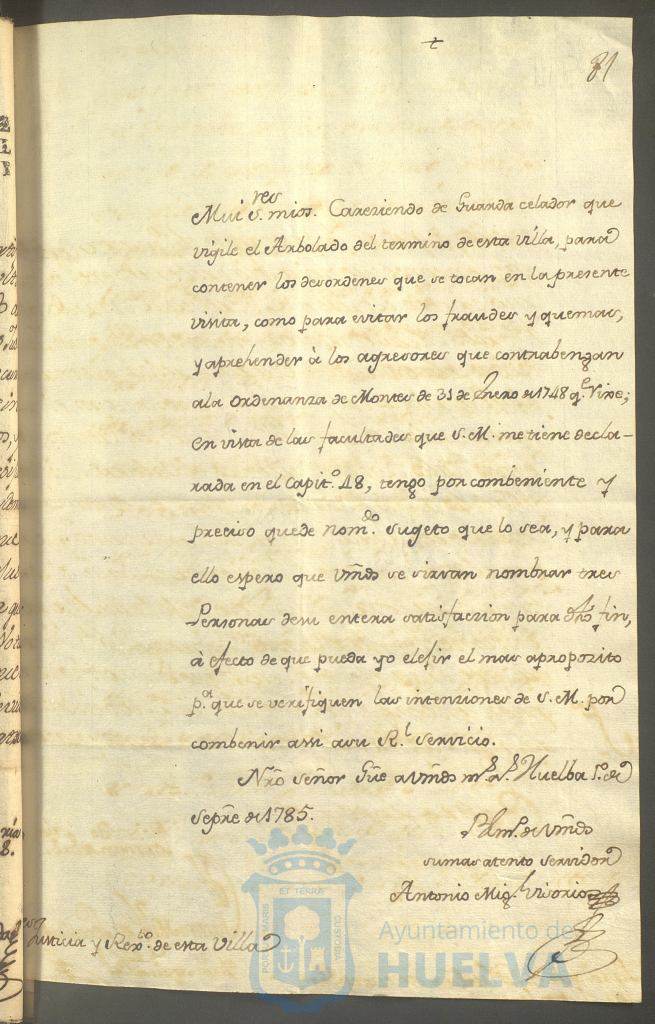 81
Mui S.res mios. Careziendo de Guarda celador que
vigile el Arbolado del termino de esta Villa, para
contener los desordenes que se tocan en la presente
visita, como para evitar los fraudes y quemas,
y aprehender à los agresores que contrabengan
ala Ordenanza de Montes de 31 de Enero de 1748 q.e Vive;
en vista de las facultades que S. M. me tiene decla-
rada en el Capit.o 18, tengo por combeniente y
preciso quede nom.do sugeto que lo sea, y para
ello espero que Vmds se sirvan nombrar tres
Personas de su entera satisfaccion para dho fin,
à efecto de que pueda yo elefir el mas aproposito
p.a que se verifiquen las intenziones de S. M. por
combenir assi a su R.l servicio.
Nrõ Señor Güe a Vmds m.s a.s Huelba de
Sepre de 1785.
BLm.o de Vmds
su mas atento servidor
Antonio Mig.l
Justicia y Rex.to de esta Villa
PORTUS MARIS
ET TERRAE
CUSTODIA
Ayuntamiento de
HUELVA